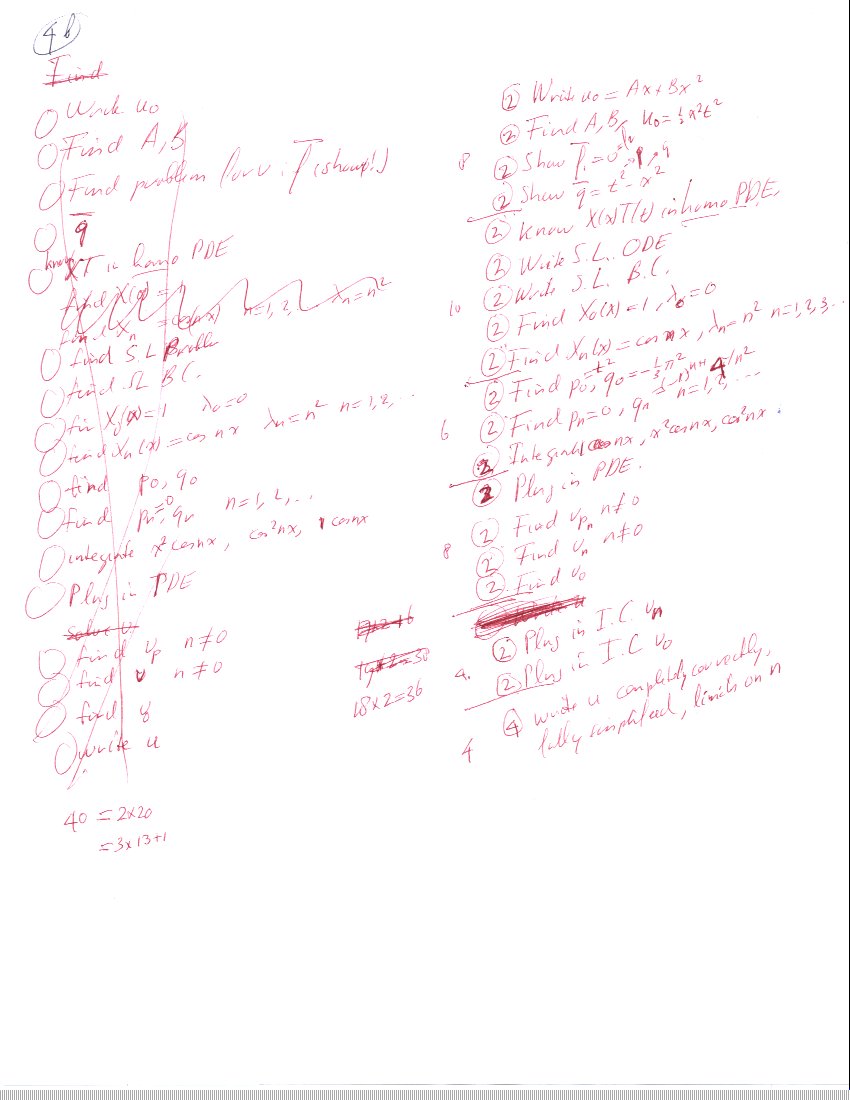 4b
Find
Write u₀
Find A, B
Find problem for v : (show!)
q̄
know XT in homo PDE
find X(x) = 1
find Xn = cos(nx) n=1,2, λn = n²
find S.L Problem
find SL B.C.
find X₀(x)=1 λ₀=0
find Xn(x) = cos nx λn = n² n=1,2,...
find p₀, q₀
find pn=0, qn n=1,2,...
integrate x² cosnx, cos²nx, 1 cosnx
Plug in PDE
Solve v
find vp n≠0
find v n≠0
find
write u
18×2=36
40 = 2×20
= 3×13+1
② Write u₀ = Ax + Bx²
② Find A, B, u₀ = ½x²t²
8 ② Show
② Show q̄ = t² - x²
② Know X(x)T(t) in homo PDE,
② Write S.L. ODE
② Write S.L. B.C.
10 ② Find X₀(x) = 1, λ₀ = 0
② Find Xn(x) = cos nx, λn = n² n=1,2,3...
② Find p₀=t², q₀ = -⅓π²
6 ② Find pn=0, qn (-1)ⁿ⁺¹ 4/n² n=1,2,...
2 Integrals cosnx, x²cosnx, cos²nx
2 Plug in PDE.
② Find vpn n≠0
8 ② Find vn n≠0
② Find v₀
② Plug in I.C vn
4. ② Plug in I.C v₀
4 ④ write u completely correctly,
fully simplified, limits on n